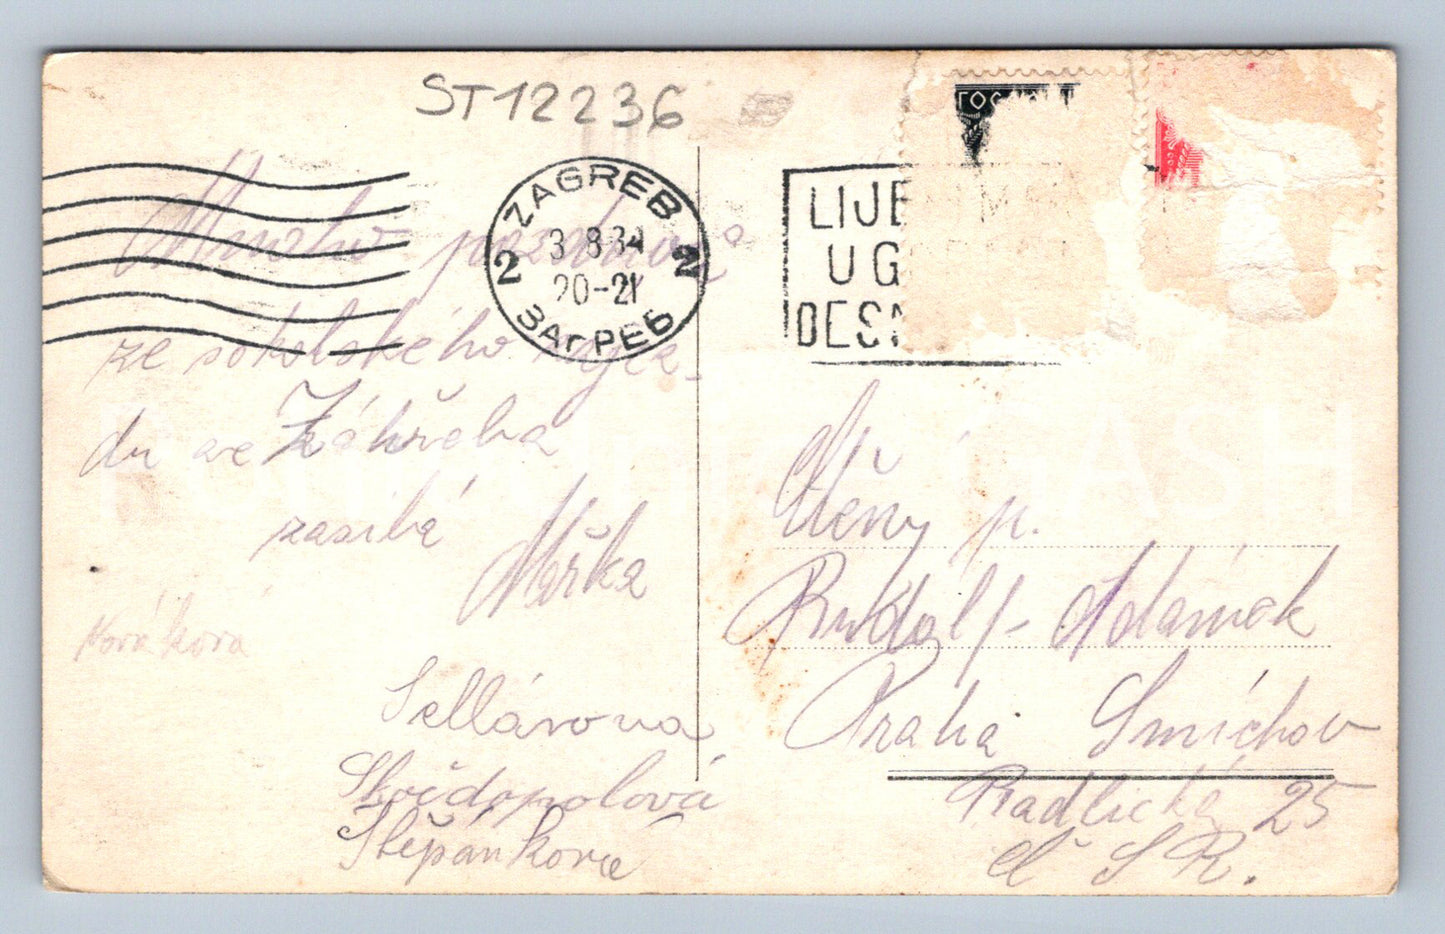 ST12236
ZAGREB
2 3 8 34 2
20-21
ЗАГРЕБ
LIJE
U G
DES
Mnoho pozdravů
ze sokolského
du ze Záhřeba
zasílá
Mařka
Kovářková
Sellárova
Štěpánková
Ctěný p.
Rudolf Adámek
Praha Smíchov
Radlická 25
ČSR.